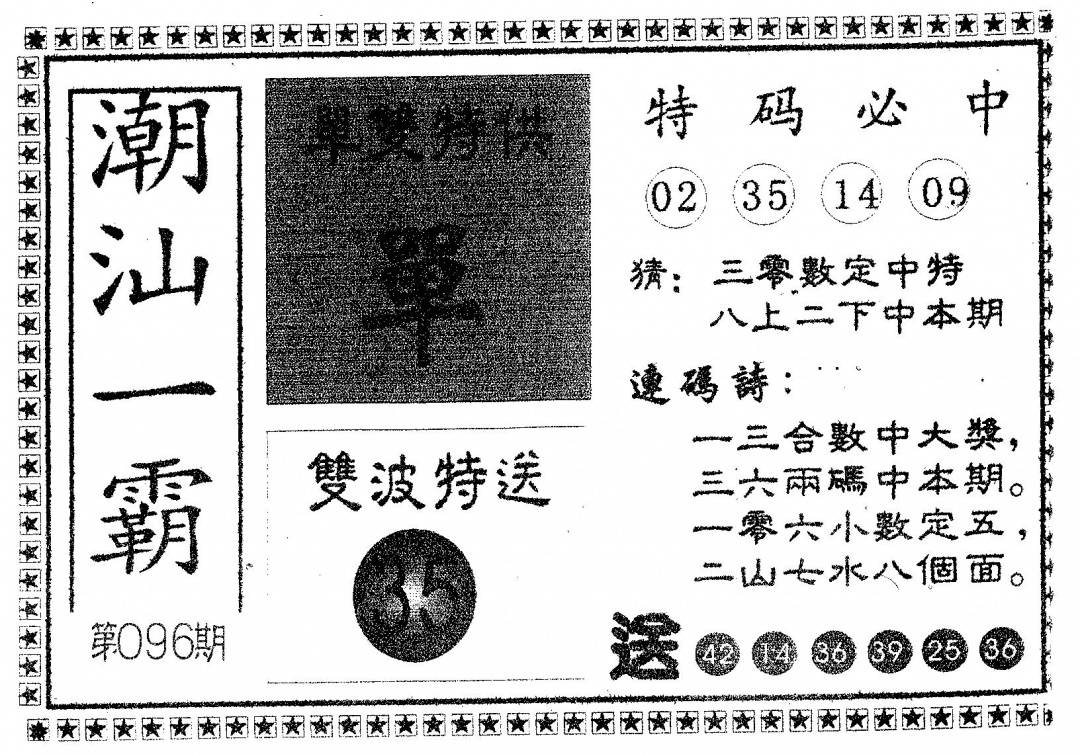 潮汕一霸
第096期
單雙特供
單
雙波特送
35
特码必中
02 35 14 09
猜：三零數定中特
八上二下中本期
連碼詩：
一三合數中大獎，
三六兩碼中本期。
一零六小數定五，
二山七水八個面。
送 42 14 36 39 25 36